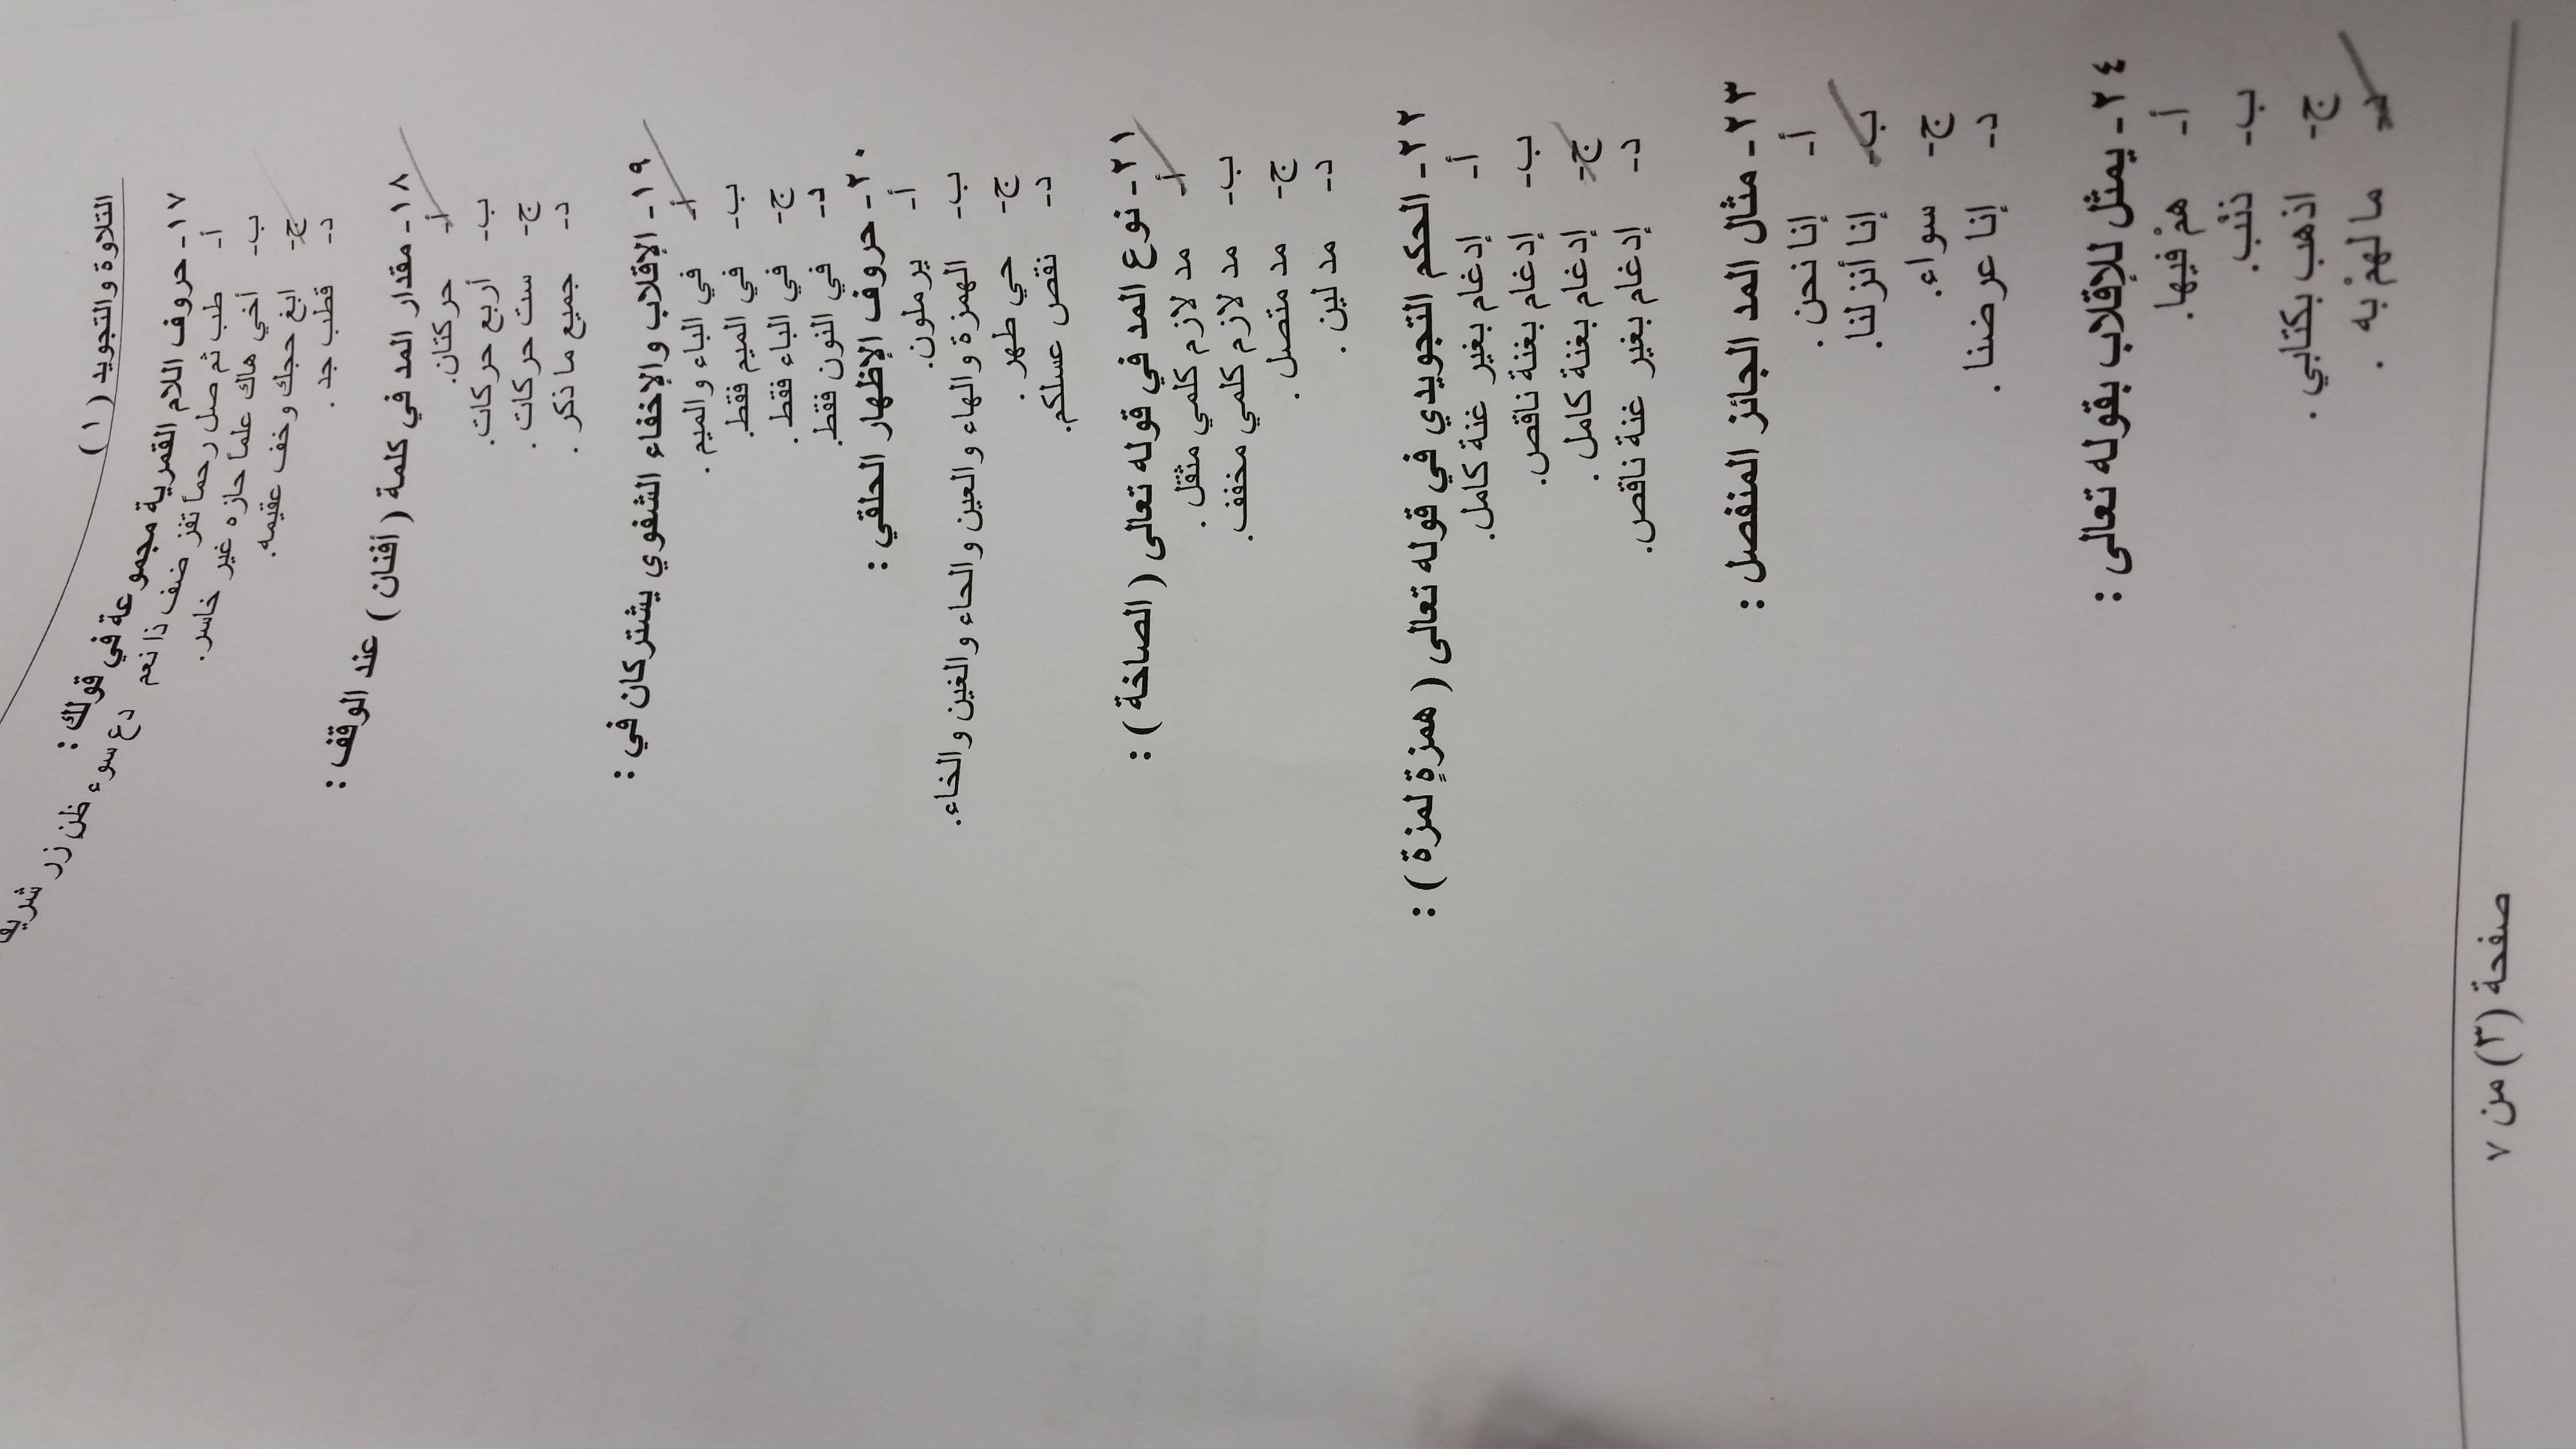 التلاوة والتجويد ( ١ )
١٧- حروف اللام القمرية مجموعة في قولك :
أ- طب ثم صل رحماً تفز ضف ذا نعم دع سوء ظن زر شريف
ب- أخي هاك علماً حازه غير خاسر.
ج- ابغ حجك وخف عقيمه.
د- قطب جد .
١٨- مقدار المد في كلمة ( أفنان ) عند الوقف :
أ- حركتان.
ب- أربع حركات.
ج- ست حركات .
د- جميع ما ذكر .
١٩- الإقلاب والإخفاء الشفوي يشتركان في :
أ- في الباء والميم .
ب- في الميم فقط.
ج- في الباء فقط .
د- في النون فقط.
٢٠- حروف الإظهار الحلقي :
أ- يرملون.
ب- الهمزة والهاء والعين والحاء والغين والخاء.
ج- حي طهر .
د- نقص عسلكم.
٢١- نوع المد في قوله تعالى ( الصاخة ) :
أ- مد لازم كلمي مثقل .
ب- مد لازم كلمي مخفف.
ج- مد متصل .
د- مد لين .
٢٢- الحكم التجويدي في قوله تعالى ( همزةٍ لمزة ) :
أ- إدغام بغير غنة كامل.
ب- إدغام بغنة ناقص.
ج- إدغام بغنة كامل .
د- إدغام بغير غنة ناقص.
٢٣- مثال المد الجائز المنفصل :
أ- إنا نحن .
ب- إنا أنزلنا.
ج- سواء.
د- إنا عرضنا .
٢٤- يمثل للإقلاب بقوله تعالى :
أ- همْ فيها.
ب- ذئب.
ج- اذهب بكتابي .
د- ما لهمْ به .
صفحة (٣) من ٧